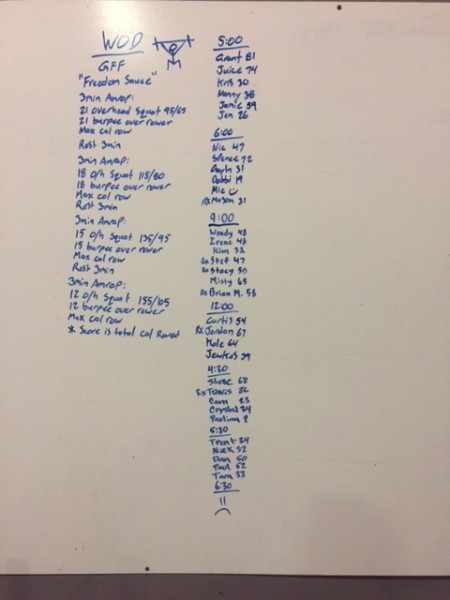 WOD
GFF
"Freedom Sauce"
3min Amrap:
21 overhead squat 95/65
21 burpee over rower
Max cal row
Rest 3min
3min Amrap:
18 o/h squat 115/80
18 burpee over rower
Max cal row
Rest 3min
3min Amrap:
15 o/h squat 135/95
15 burpee over rower
Max cal row
Rest 3min
3min Amrap:
12 o/h squat 155/105
12 burpee over rower
Max cal row
* Score is total cal Rowed
M
5:00
Grant 81
Juice 74
Kris 30
Manny 38
Jamie 59
Jen 26
6:00
Nic 47
Spence 72
31
19
Mic
Rx Mason 31
9:00
Woody 48
Irene 43
Kim 32
Rx Stef 47
Rx Stacy 50
Missy 65
Rx Brian M. 58
12:00
Curtis 54
Rx Jordan 67
Kyle 64
Jewkes 39
4:30
Steve 68
Travis 26
Cam 23
Crystal 34
Paulina
5:30
Trent 34
Nick 52
50
Paul 52
Tara 33
6:30